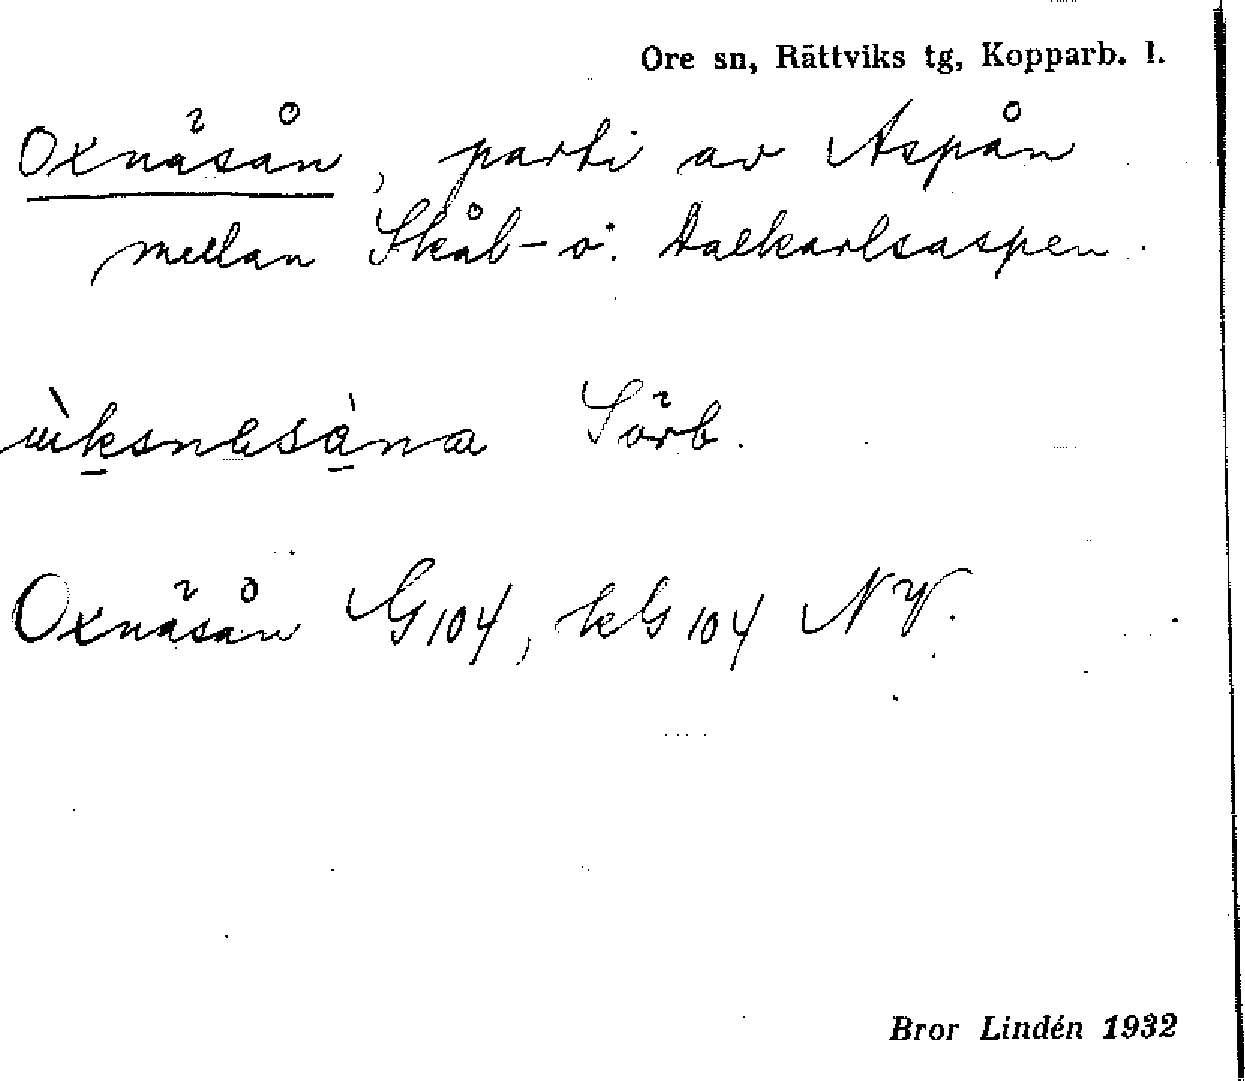 Ore sn, Rättviks tg, Kopparb. l.
Oxnäsån, parti av Aspån
mellan Skål- o. Dalkarlsaspen.
Sörb.
Oxnäsån G104, kG104 NV.
Bror Lindén 1932